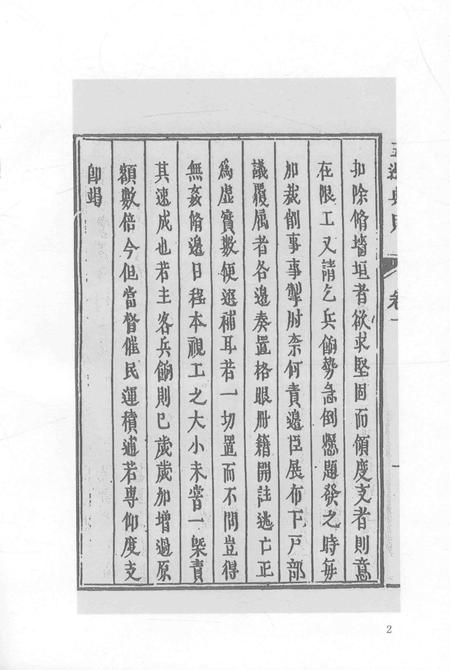 五邊典則
卷一
一
扣除脩墻垣者欲求堅固而領度支者則意
在限工又請乞兵餉勢急倒懸題發之時每
加裁削事事掣肘柰何責邊臣展布下戶部
議覆属者各邊奏置格眼册籍開註逃亡正
爲虛實數便選補耳若一切置而不問豈得
無姦脩邊日程本視工之大小未嘗一槩責
其速成也若主客兵餉則已歲歲加增過原
額數倍今但當督催民運積逋若專仰度支
即竭
2